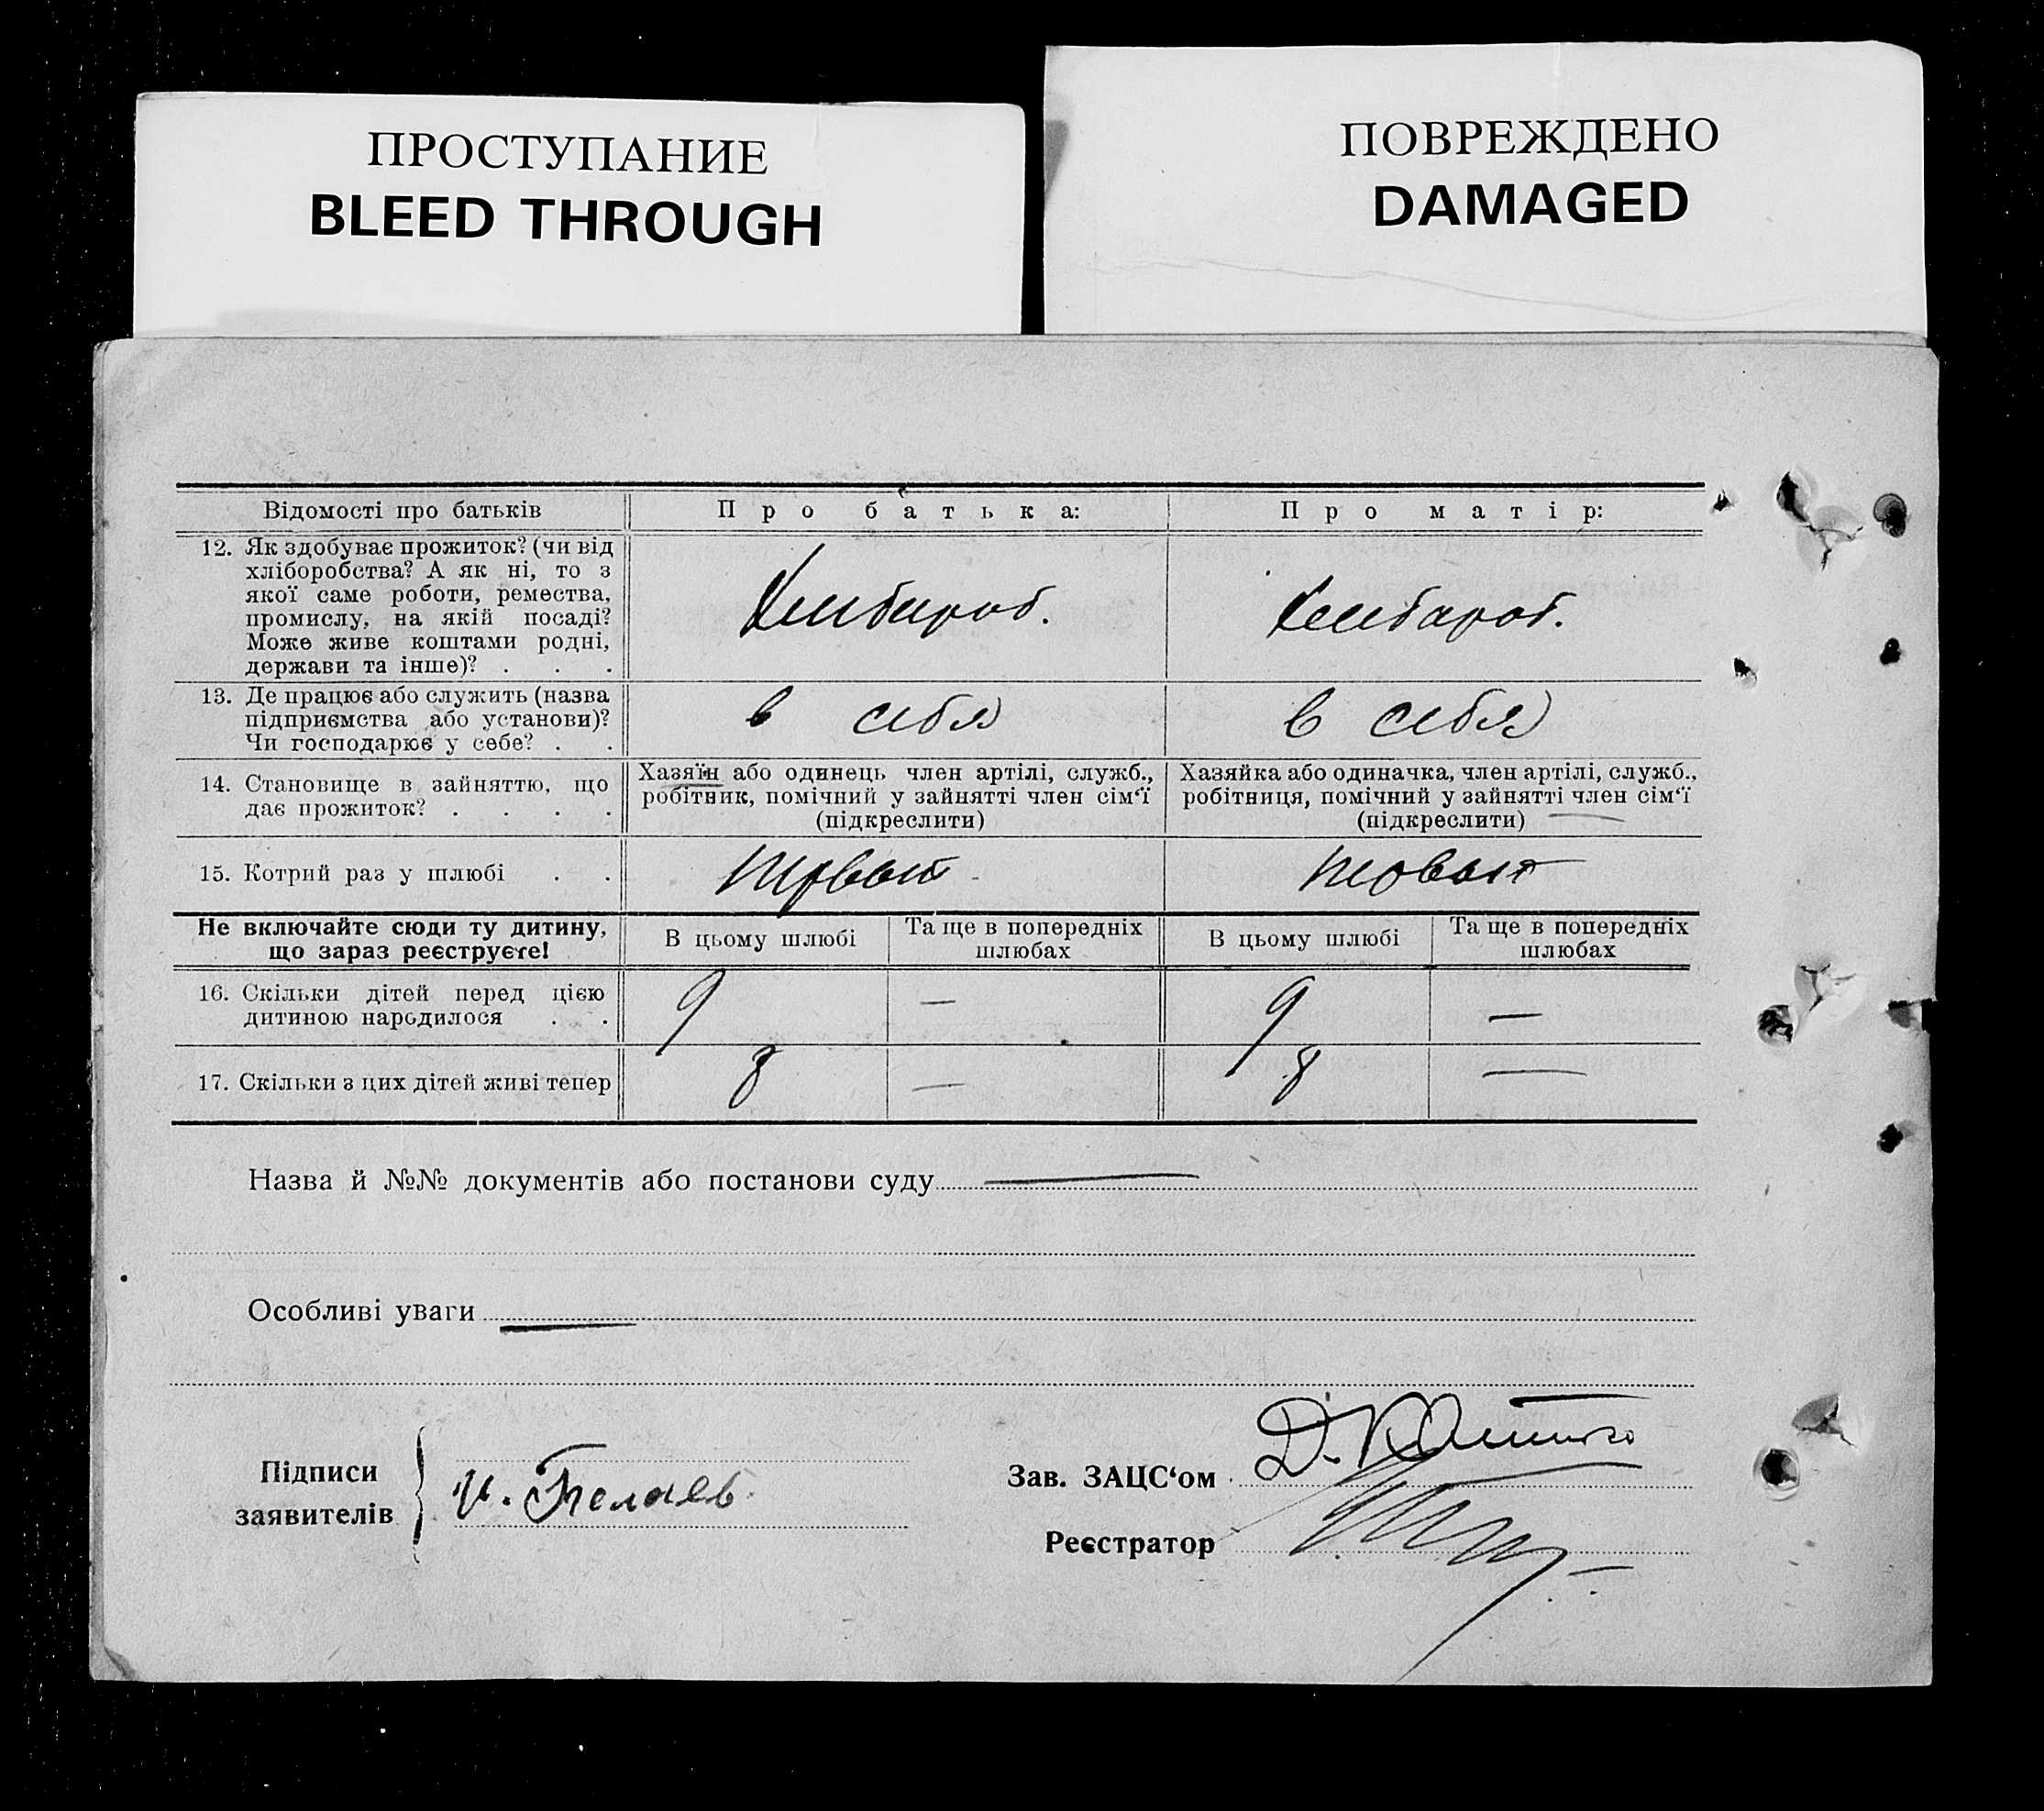 ПРОСТУПАНИЕ
BLEED THROUGH
ПОВРЕЖДЕНО
DAMAGED
Відомості про батьків
Про батька:
Про матір:
12. Як здобуває прожиток? (чи від
хліборобства? А як ні, то з
якої саме роботи, ремества,
промислу, на якій посаді?
Може живе коштами родні,
держави та інше)? . . .
13. Де працює або служить (назва
підприємства або установи)?
Чи господарює у себе? . .
в себя
в себя
14. Становище в зайняттю, що
дає прожиток? . . . .
Хазяїн або одинець член артілі, служб.,
робітник, помічний у зайнятті член сім‘ї
(підкреслити)
Хазяйка або одиначка, член артілі, служб.,
робітниця, помічний у зайнятті член сім‘ї
(підкреслити)
15. Котрий раз у шлюбі . .
Не включайте сюди ту дитину,
що зараз реєструєте!
В цьому шлюбі
Та ще в попередніх
шлюбах
В цьому шлюбі
Та ще в попередніх
шлюбах
16. Скільки дітей перед цією
дитиною народилося . .
9
—
9
—
17. Скільки з цих дітей живі тепер
8
—
8
—
Назва й №№ документів або постанови суду
Особливі уваги
Підписи
заявителів
Зав. ЗАЦС‘ом
Реєстратор